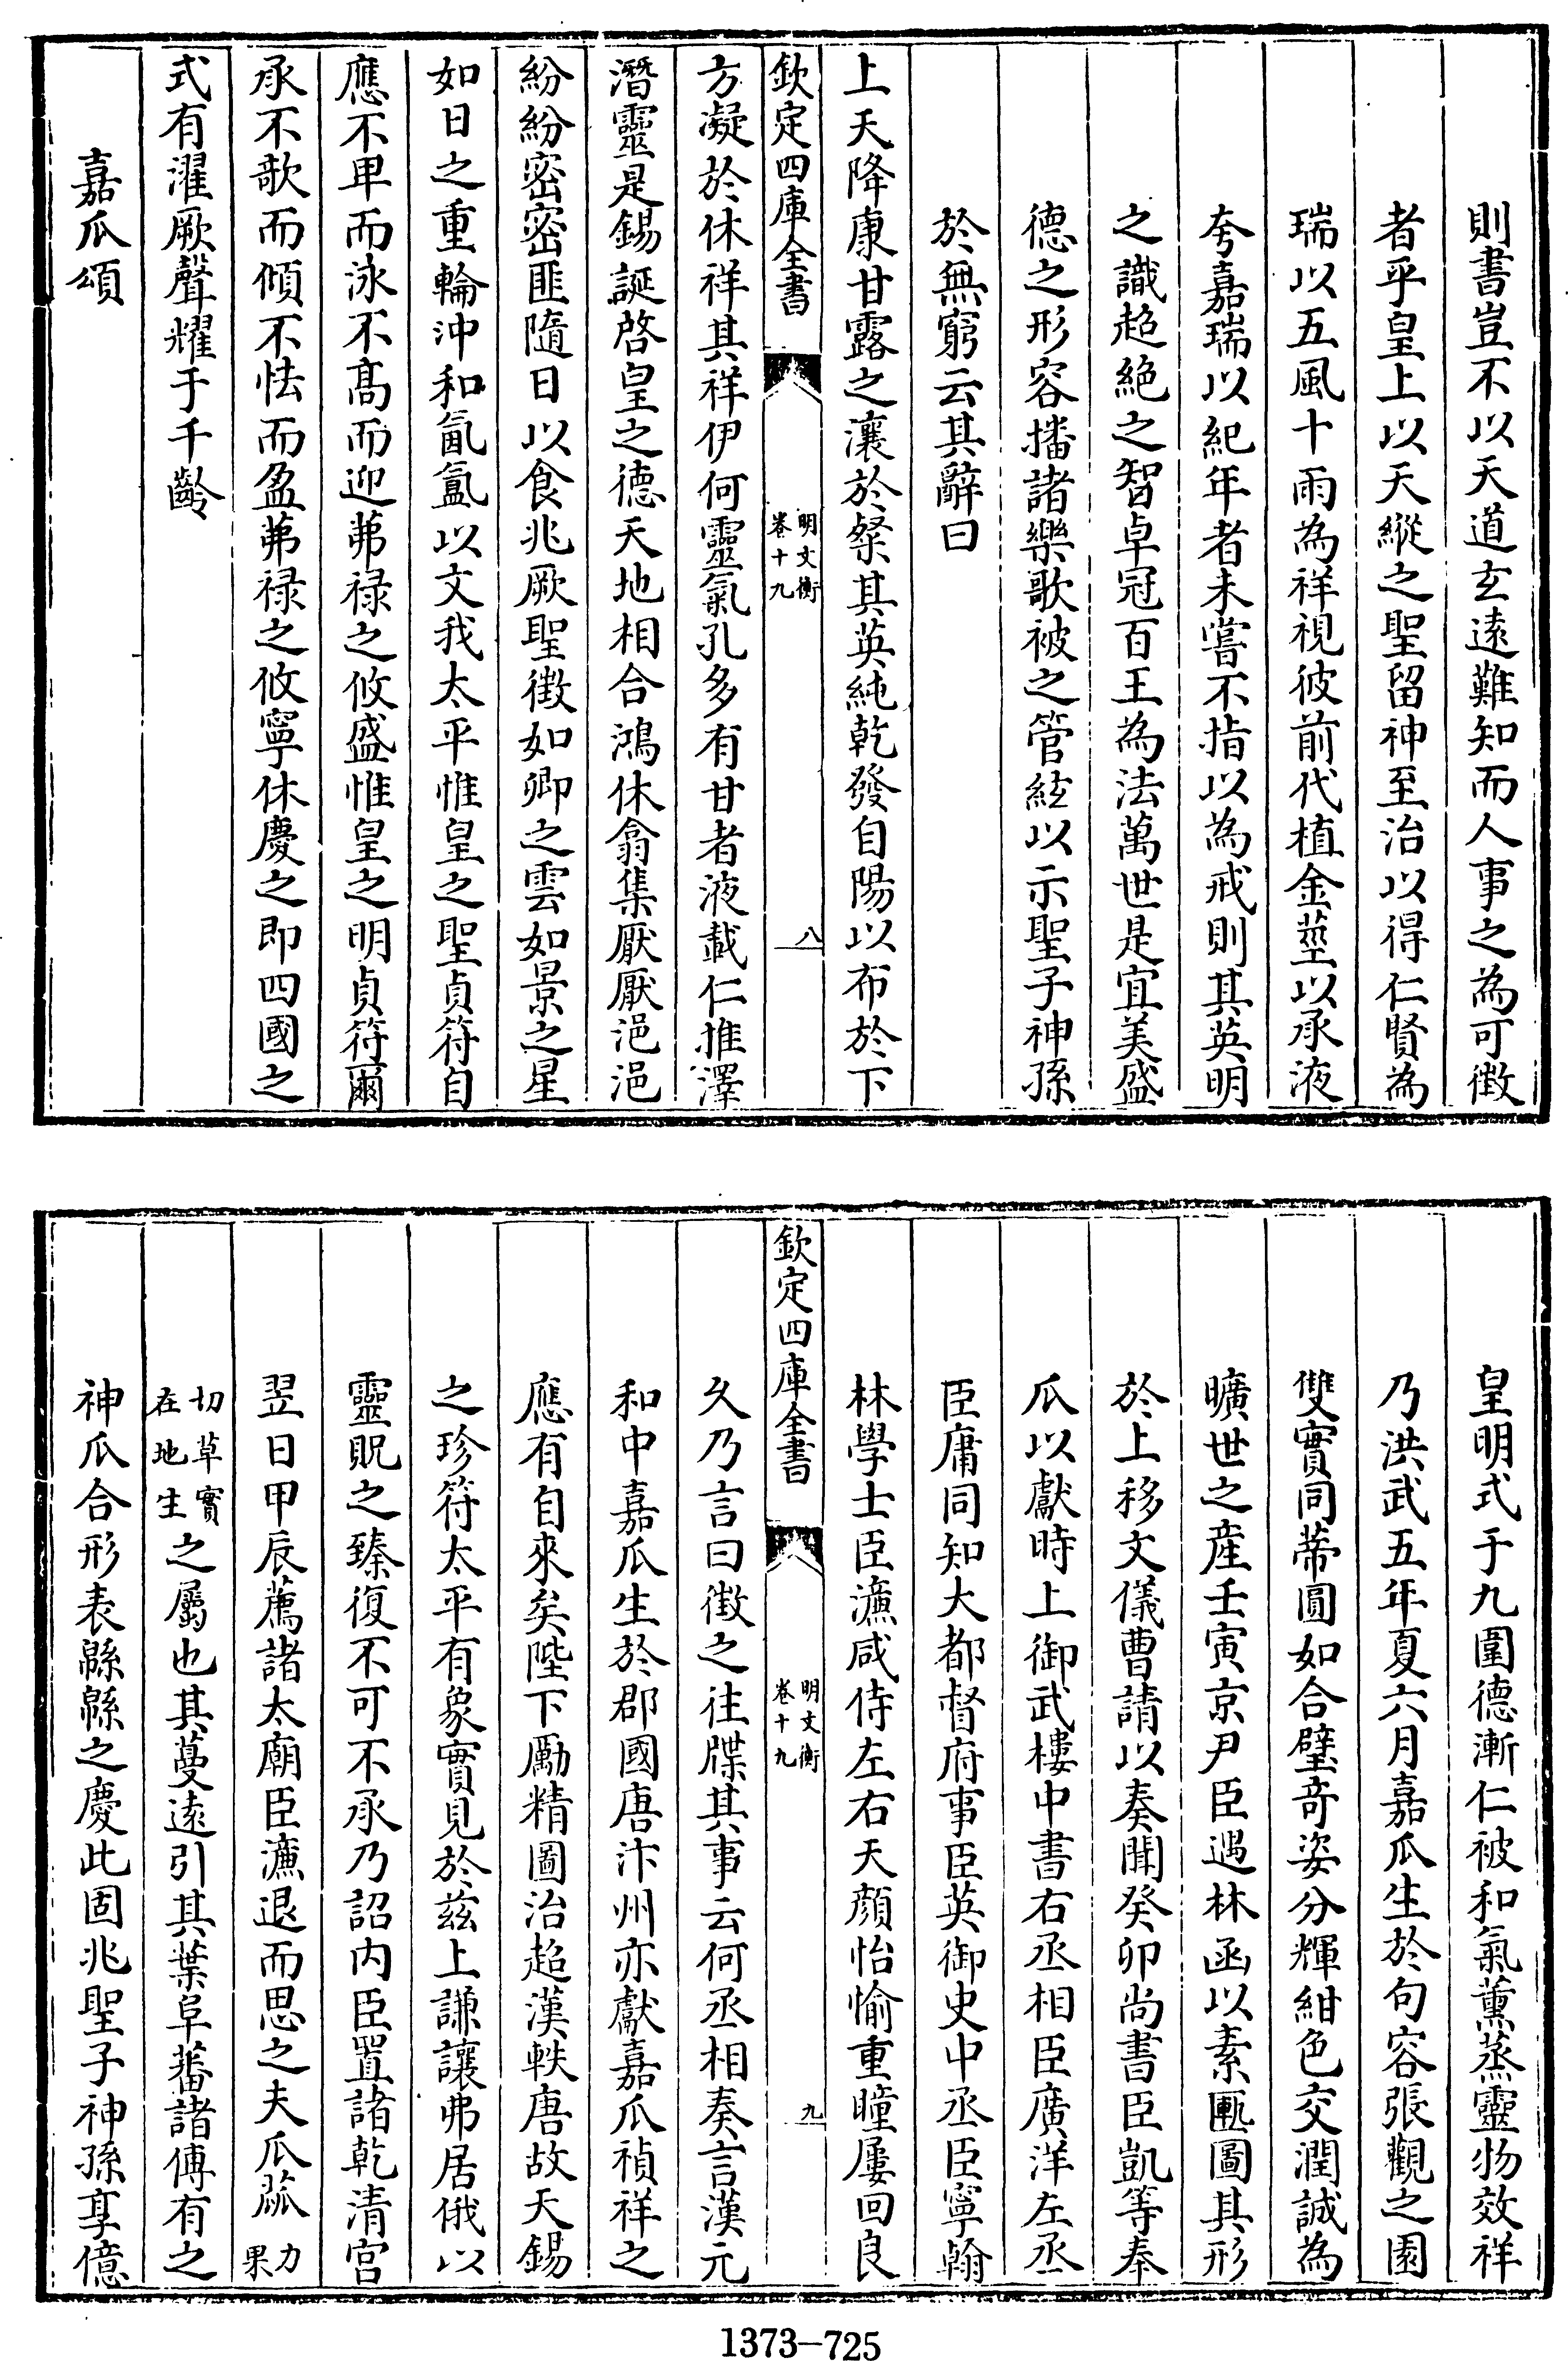 則書豈不以天道玄遠難知而人事之為可徴
者乎皇上以天縱之聖留神至治以得仁賢為
瑞以五風十雨為祥視彼前代植金莖以承液
夸嘉瑞以紀年者未嘗不指以為戒則其英明
之識超絶之智卓冠百王為法萬世是宜美盛
德之形容播諸樂歌被之管絃以示聖子神孫
於無窮云其辭曰
上天降康甘露之瀼於粲其英純乾發自陽以布於下
欽定四庫全書
明文衡
卷十九
八
方凝於休祥其祥伊何靈氣孔多有甘者液載仁推澤
潛靈是錫誕啓皇之德天地相合鴻休翕集厭厭浥浥
紛紛密密匪隨日以食兆厥聖徴如卿之雲如景之星
如日之重輪沖和氤氲以文我太平惟皇之聖貞符自
應不卑而泳不髙而迎茀禄之攸盛惟皇之明貞符爾
承不欹而傾不怯而盈茀禄之攸寧休慶之即四國之
式有濯厥聲耀于千齡
嘉瓜頌
皇明式于九圍德漸仁被和氣薰蒸靈物效祥
乃洪武五年夏六月嘉瓜生於句容張觀之園
雙實同蒂圓如合璧奇姿分輝紺色交潤誠為
曠世之産壬寅京尹臣遇林函以素匭圖其形
於上移文儀曹請以奏聞癸卯尚書臣凱等奉
瓜以獻時上御武樓中書右丞相臣廣洋左丞
臣庸同知大都督府事臣英御史中丞臣寧翰
林學士臣濂咸侍左右天顔怡愉重瞳屢回良
欽定四庫全書
明文衡
卷十九
九
久乃言曰徴之往牒其事云何丞相奏言漢元
和中嘉瓜生於郡國唐汴州亦獻嘉瓜禎祥之
應有自來矣陛下勵精圖治超漢軼唐故天錫
之珍符太平有象實見於兹上謙讓弗居俄以
靈貺之臻復不可不承乃詔内臣置諸乾清宫
翌日甲辰薦諸太廟臣濂退而思之夫瓜蓏力果
切草實在地生之屬也其蔓遠引其葉阜蕃諸傳有之
神瓜合形表緜緜之慶此固兆聖子神孫享億
1373—725